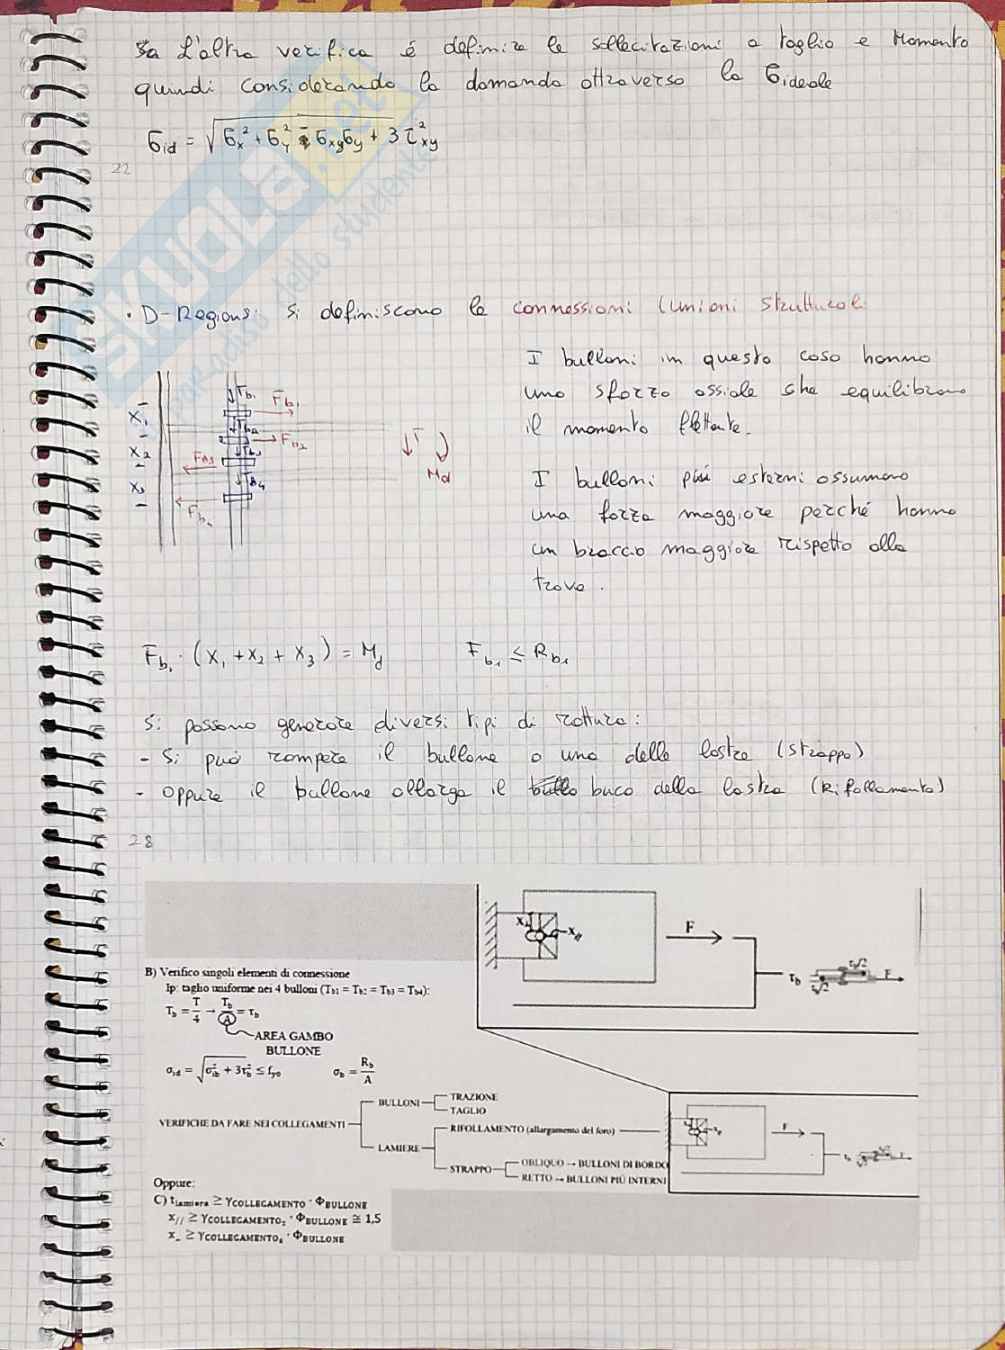 3a L'altra verifica é definire le sollecitazioni a taglio e Momento
quindi considerando la domanda attraverso la σideale
σid = √σx² + σy² - σxyσy + 3 τ²xy
22
SKUOLA.net
paradiso dello studente
• D-Regions: si definiscono le connessioni (unioni strutturali
I bulloni in questo caso hanno
uno sforzo assiale che equilibrano
il momento flettente.
I bulloni più esterni assumono
una forza maggiore perché hanno
un braccio maggiore rispetto alla
trave.
X1
X2
X3
Tb1
Fb1
Fb2
Fb3
Tb4
T
Md
Fb1 · (X1 + X2 + X3) = Md Fb1 ≤ Rb1
Si possono generare diversi tipi di rottura:
- Si può rompere il bullone o una delle lastre (Strappo)
- oppure il bullone allarga il buco della lastra (Rifollamento)
28
X⊥
X//
F
τb
τb/2
τb/2
F
B) Verifico singoli elementi di connessione
Ip: taglio uniforme nei 4 bulloni (Tb1 = Tb2 = Tb3 = Tb4):
Tb = T/4 → Tb/A = τb
AREA GAMBO
BULLONE
σid = √σ²ib + 3τ²b ≤ fyo σb = Rb/A
VERIFICHE DA FARE NEI COLLEGAMENTI
BULLONI
TRAZIONE
TAGLIO
LAMIERE
RIFOLLAMENTO (allargamento del foro)
STRAPPO
OBLIQUO → BULLONI DI BORDO
RETTO → BULLONI PIÙ INTERNI
F
Oppure:
C) tlamiera ≥ γCOLLEGAMENTO · ΦBULLONE
x// ≥ γCOLLEGAMENTO2 · ΦBULLONE ≅ 1,5
x- ≥ γCOLLEGAMENTO · ΦBULLONE